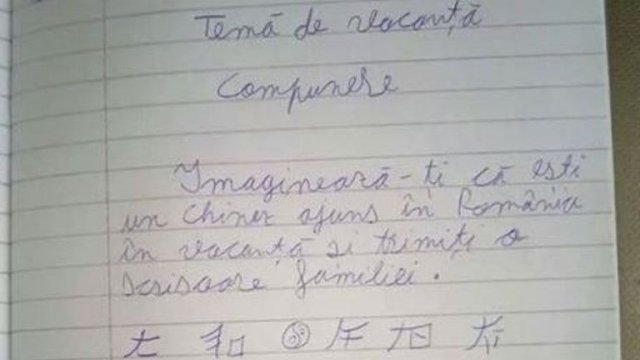 Temă de vacanță
Compunere
Imaginează-ți că esti
un chinez ajuns în România
în vacanță si trimiți o
scrisoare familiei.